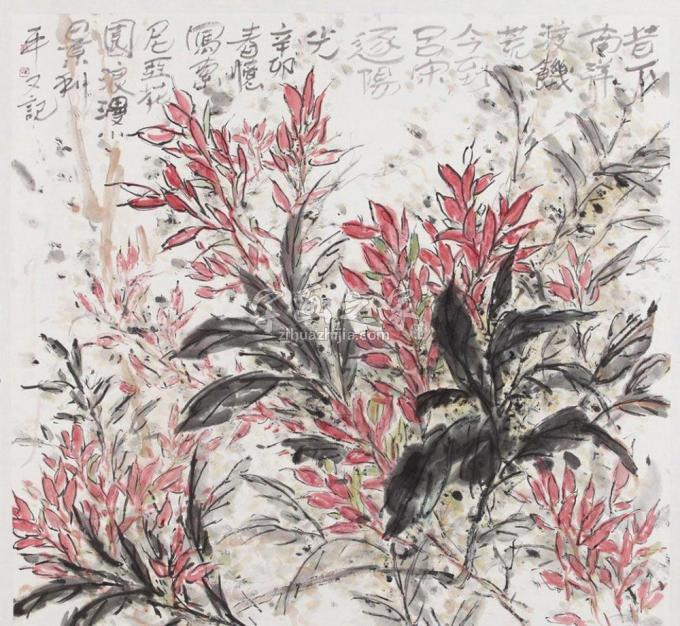 昔下
南洋
渡饑
荒
今到
呂宋
逐陽
光
辛卯
春憶
寫索
尼亞花
園浪漫小
景利
平又記
字画之家
zihuazhijia.com